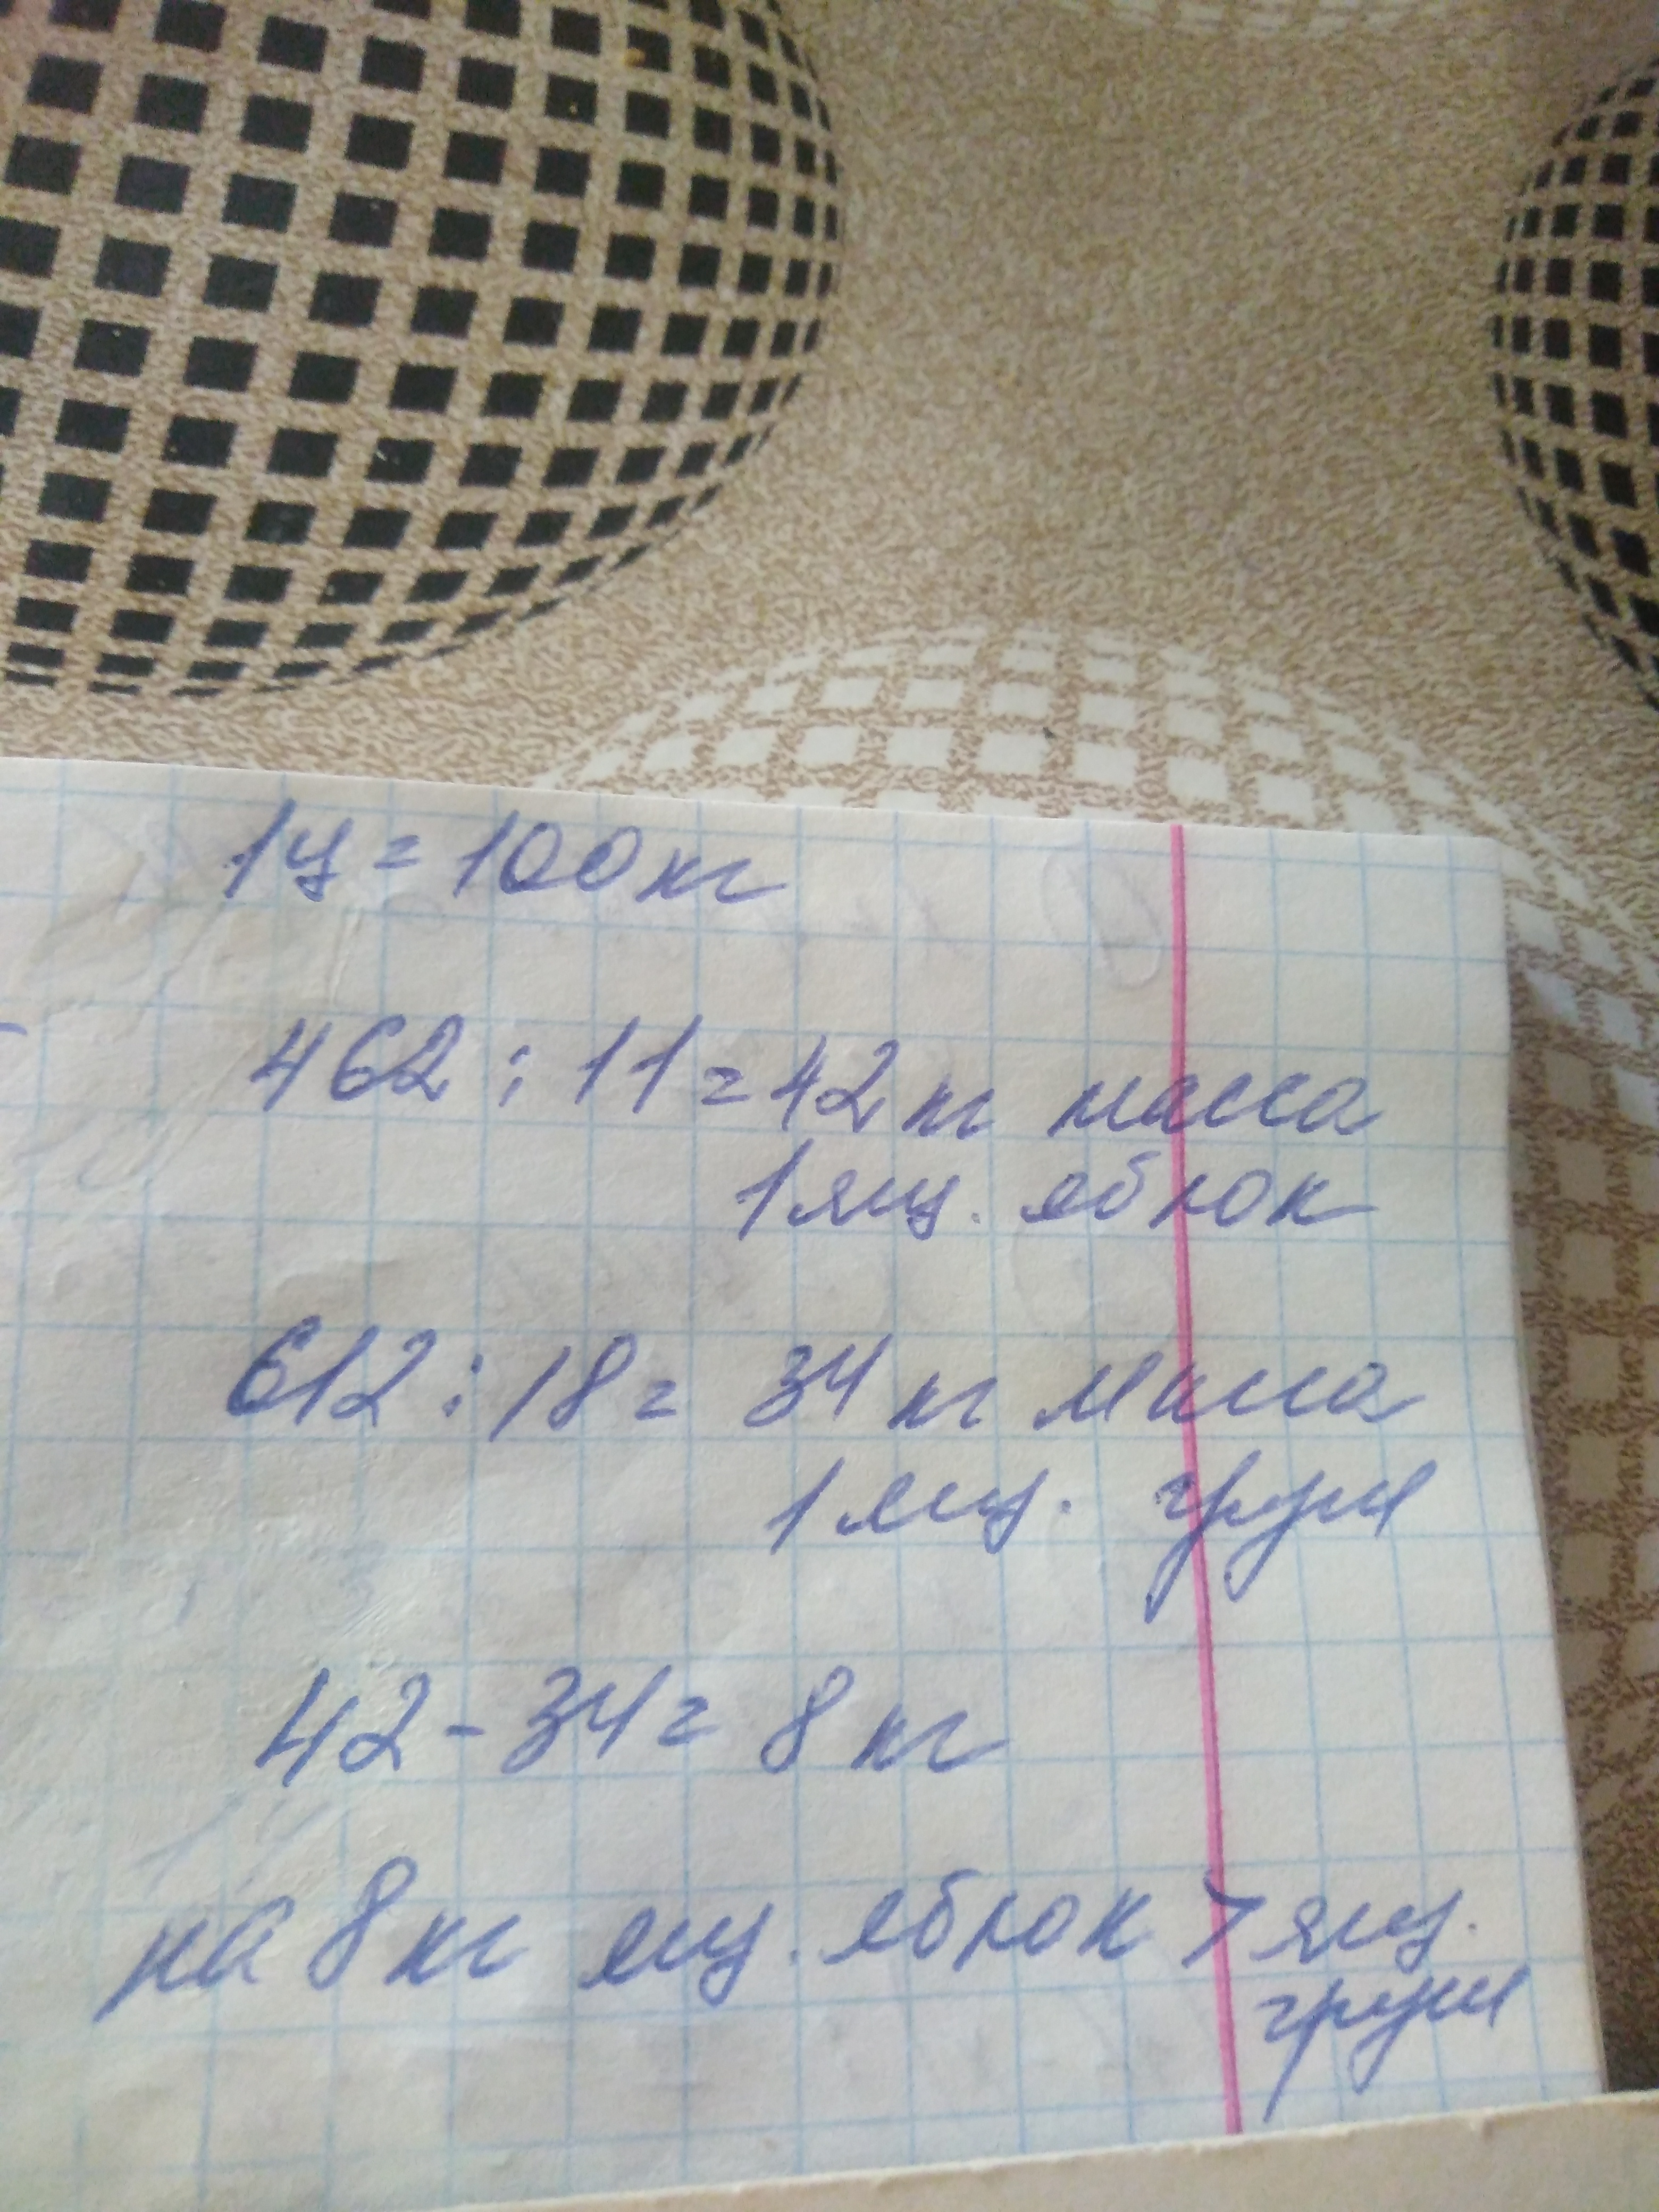 1ц = 100 кг
462 : 11 = 42 кг масса
1 ящ. яблок
612 : 18 = 34 кг масса
1 ящ. груш
42 - 34 = 8 кг
на 8 кг ящ. яблок > ящ.
груш